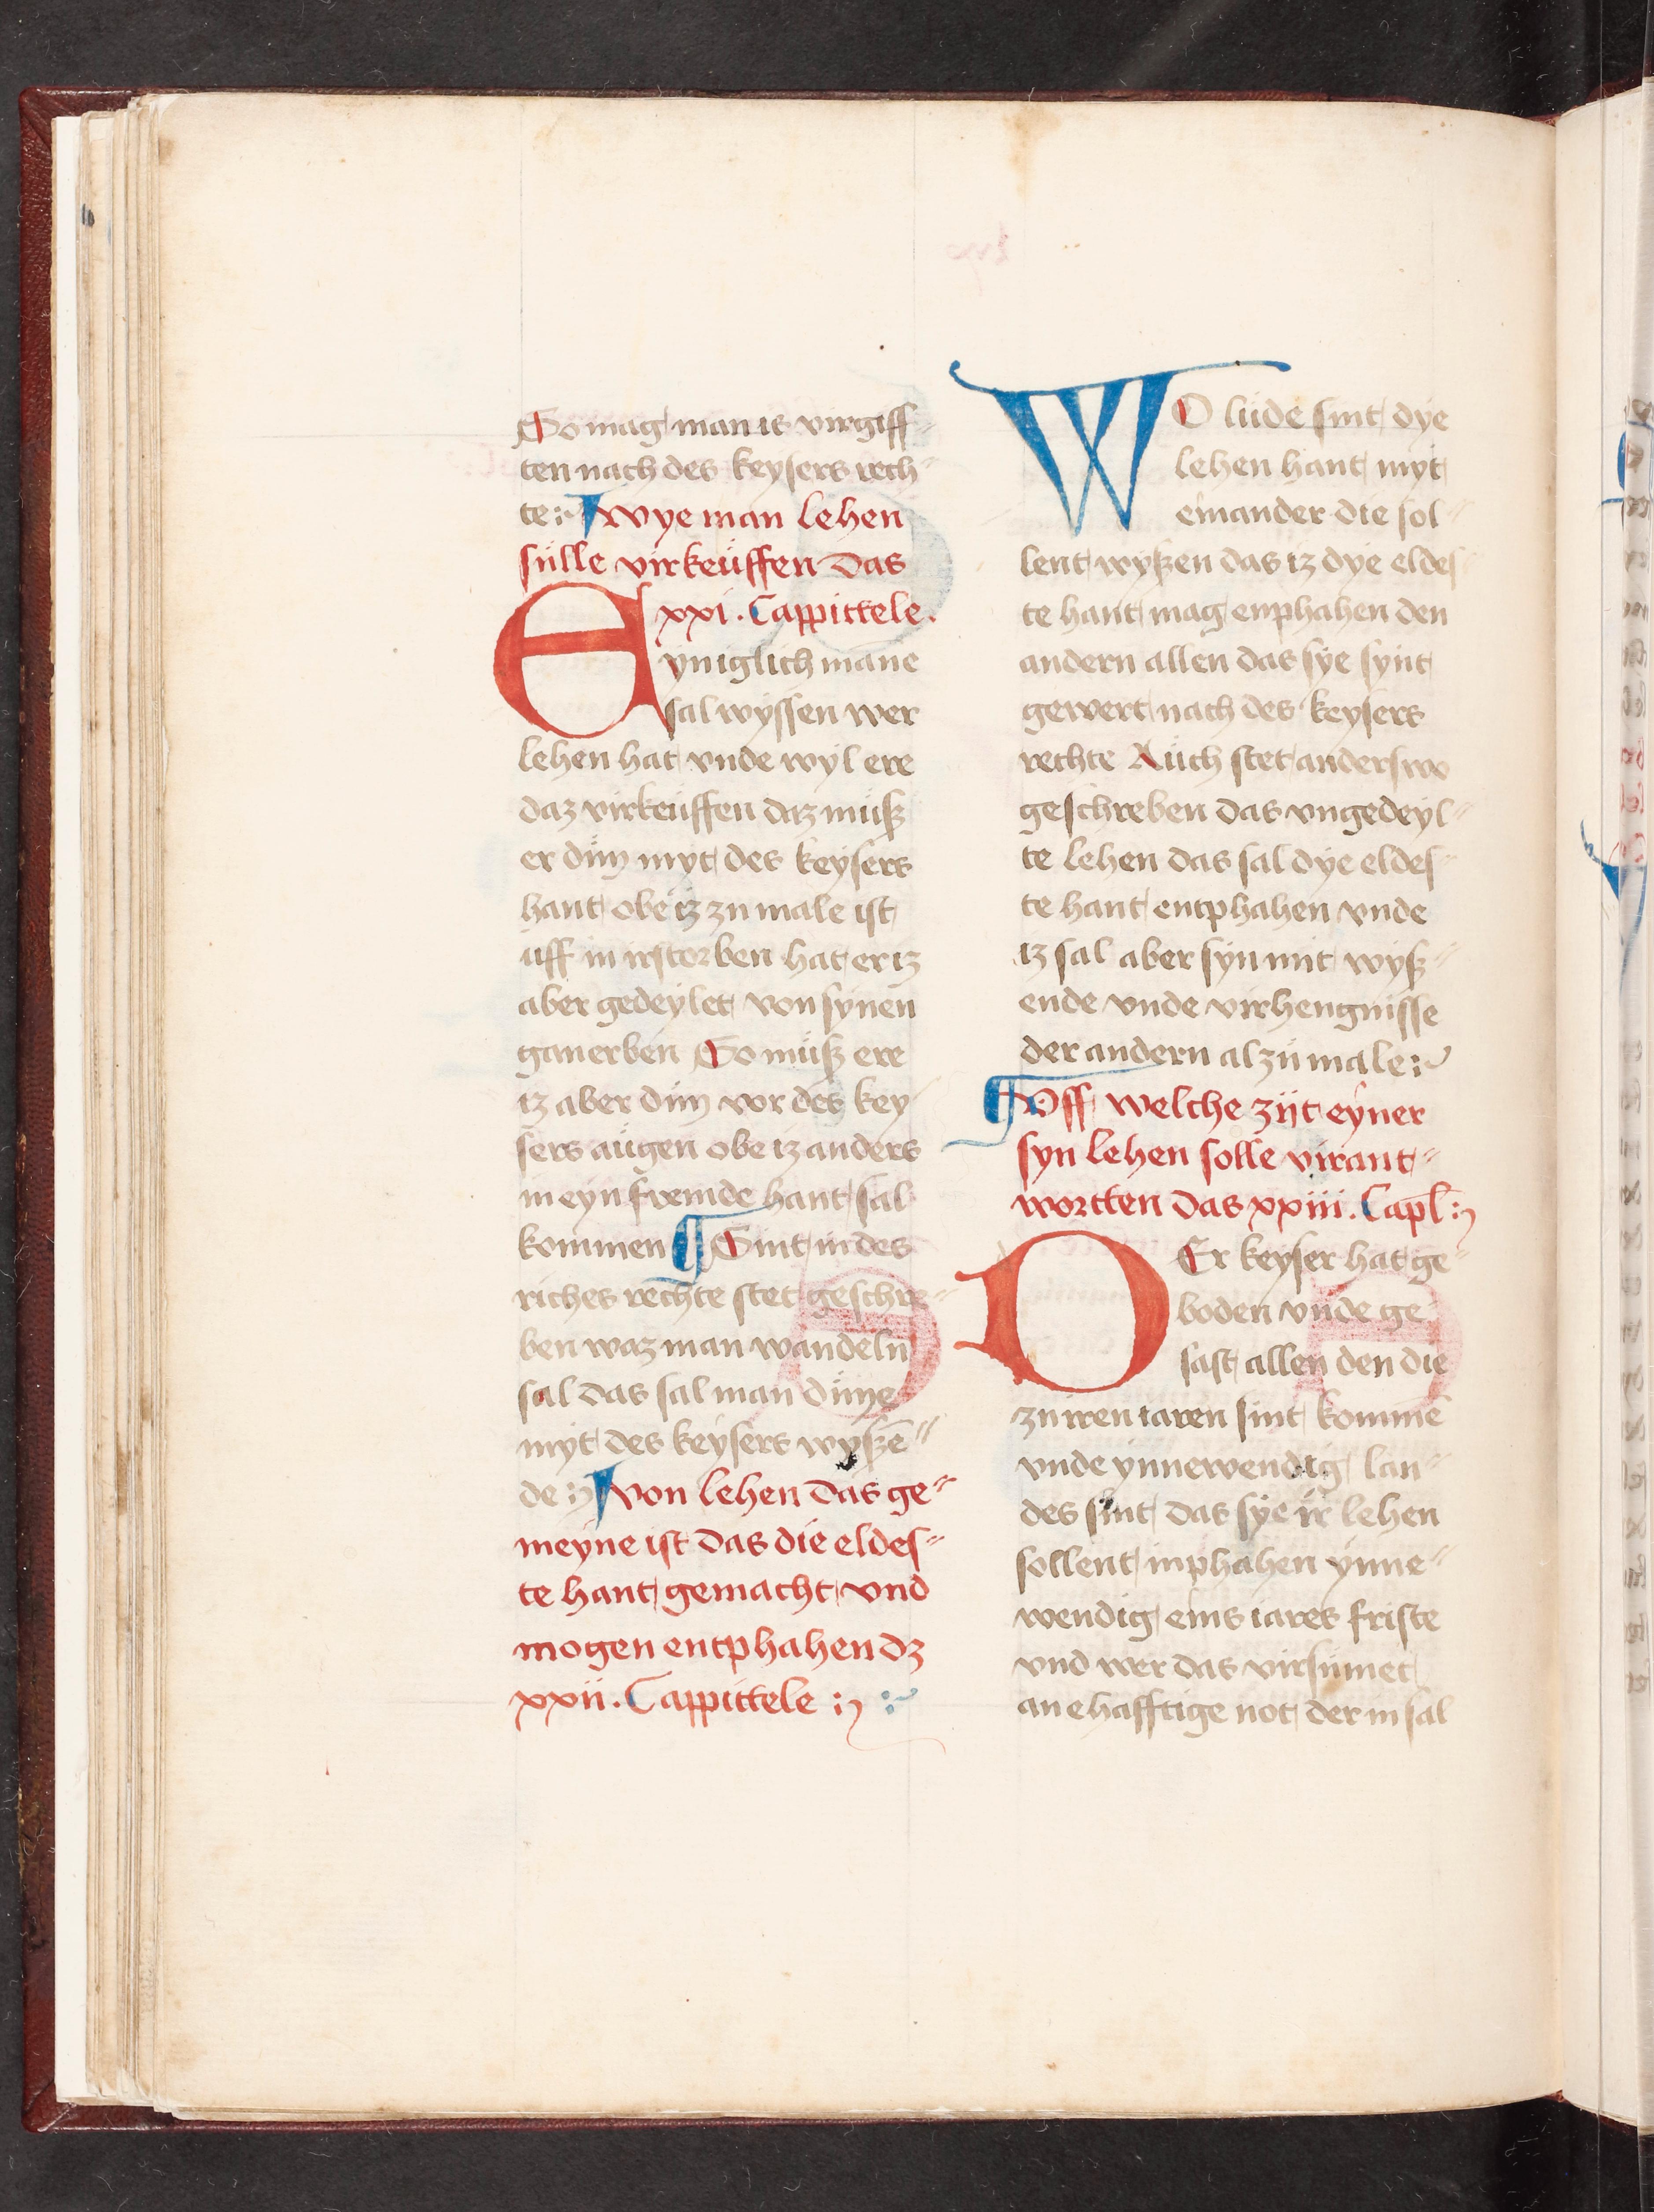 So mag man is virgiff„
ten nach des keysers rech„
te :~ ¶ wye man lehen
sülle virkeüffen das
xxi. Cappittele.
Eyn iglich mane
sal wyssen wer
lehen hat vnde wyl ere
daz virkeüffen daz müsz
er důn myt des keysers
hant obe iz zu male ist
uff in irstorben hat er iz
aber gedeylet von synen
ganerben So müsz ere
iz aber důn vor des key
sers augen obe iz anders
in eyn fremde hant sal
kommen ¶ Sint in des
riches rechte stet geschre„
ben waz man wandeln
sal das sal man důne
myt des keysers wyszē„
de :~ ¶ von lehen das ge„
meyne ist das die eldes„
te hant gemacht vnd
mogen entphahen dz
xxii. Cappittele :~
WO lüde sint dye
lehen hant myt
einander die sol„
lent wyszen das iz dye eldes„
te hant mag enphahen den
andern allen das sye synt
gewert nach des keysers
rechte Aüch stet anderswo
geschreben das vngedeyl„
te lehen das sal dye eldes„
te hant entphahen vnde
iz sal aber syn mit wysz„
ende vnde virhengnisse
der andern alzümale :~
¶ Vff welche zijt eyner
syn lehen solle virant„
wortten das xxiii. Capl :~
DEr keyser hat ge„
boden vnde ge„
sast allen den die
zu iren iaren sint kommē
vnde ynnewendig lan„
des sint das sye ir lehen
sollent inphahen ynne„
wendig eins iares friste
vnd wer das virsümet
an ehafftige not der in sal